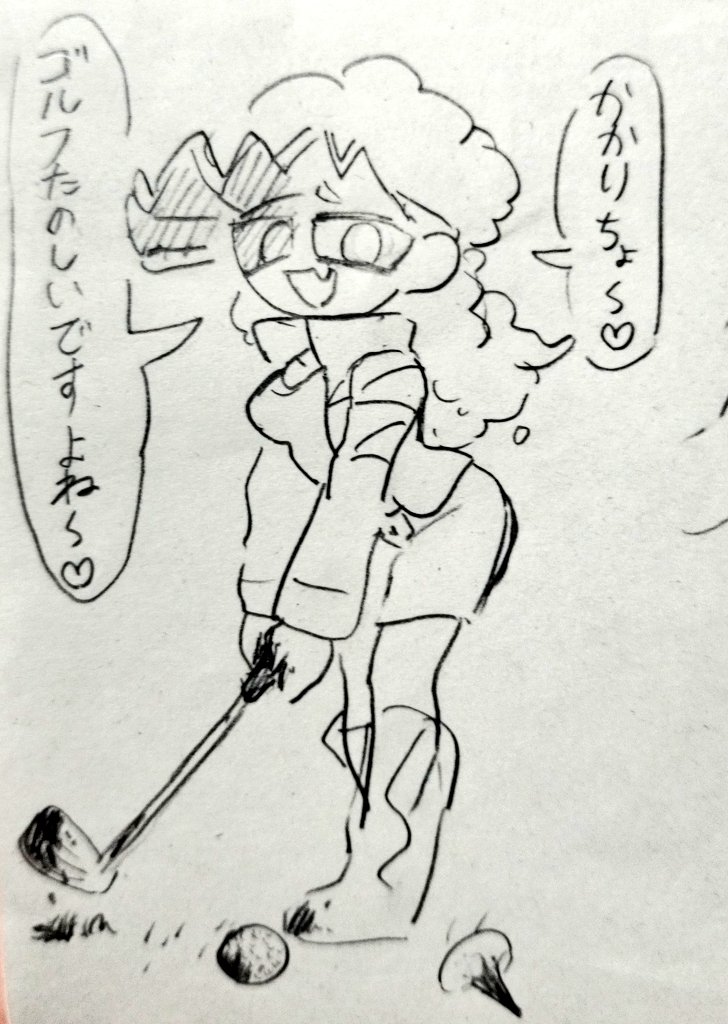 かかりちょ〜♡
ゴルフたのしいですよね〜♡